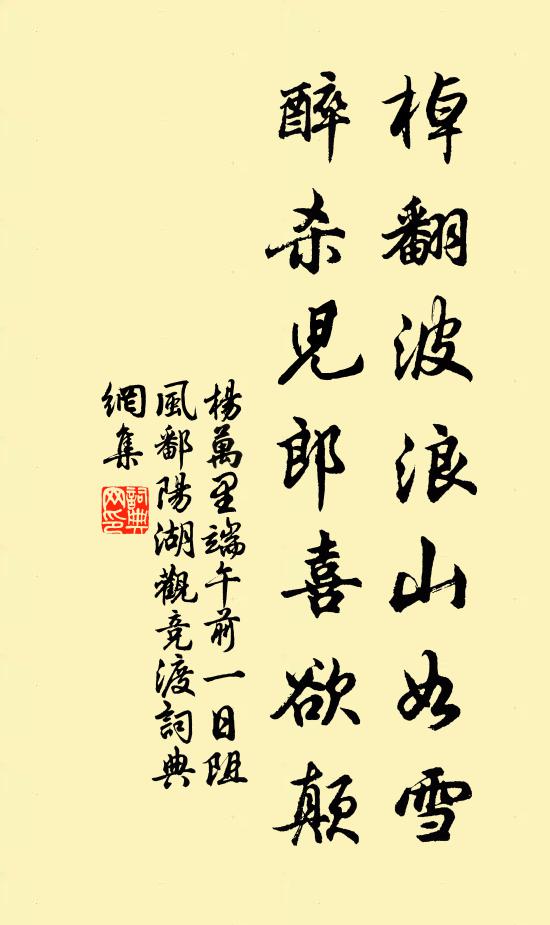 棹翻波浪山如雪
醉杀児郎喜欲颠
楊萬里端午前一日阻
風鄱陽湖觀竞渡詞典
網集
詞典
网印